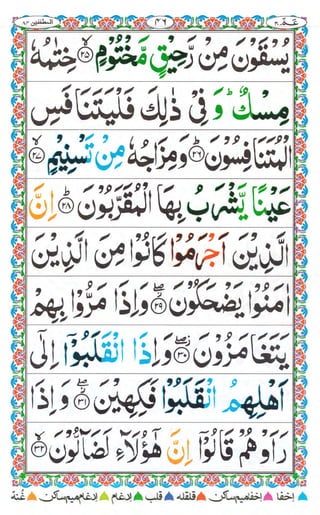 عـمّ ٣٠ ٤٦ المطففين ٨٣
يُسْقَوْنَ مِنْ رَّحِيْقٍ مَّخْتُوْمٍ ۙ﴿۲۵﴾ خِتٰمُهٗ
مِسْكٌ ؕ وَ فِيْ ذٰلِكَ فَلْيَتَنَافَسِ
الْمُتَنَافِسُوْنَ ؕ﴿۲۶﴾ وَمِزَاجُهٗ مِنْ تَسْنِيْمٍ ۙ﴿۲۷﴾
عَيْنًا يَّشْرَبُ بِهَا الْمُقَرَّبُوْنَ ؕ﴿۲۸﴾ اِنَّ
الَّذِيْنَ اَجْرَمُوْا كَانُوْا مِنَ الَّذِيْنَ
اٰمَنُوْا يَضْحَكُوْنَ ۖ﴿۲۹﴾ وَاِذَا مَرُّوْا بِهِمْ
يَتَغَامَزُوْنَ ۖ﴿۳۰﴾ وَاِذَا انْقَلَبُوْۤا اِلٰٓى
اَهْلِهِمُ انْقَلَبُوْا فَكِهِيْنَ ۖ﴿۳۱﴾ وَاِذَا
رَاَوْهُمْ قَالُوْۤا اِنَّ هٰٓؤُلَآءِ لَضَآلُّوْنَ ۙ﴿۳۲﴾
اخفا اخفا میم ساکن قلقله قلب ادغام ادغام میم ساکن غنه